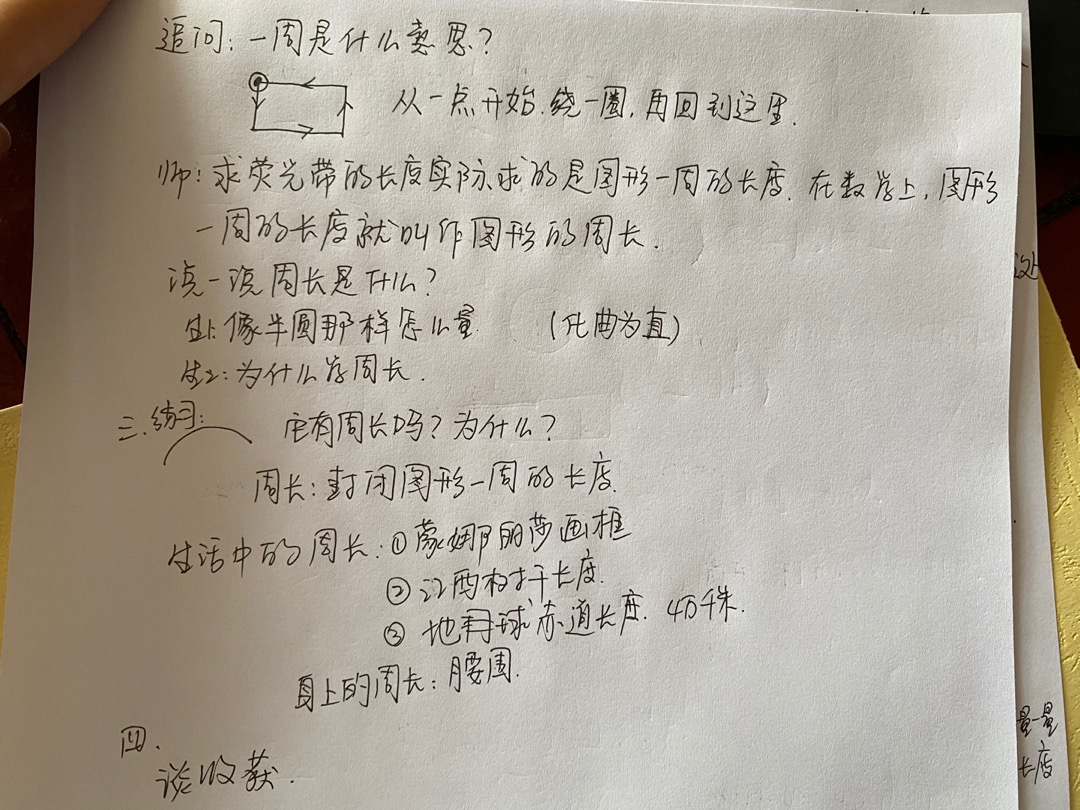 追问：一周是什么意思？
从一点开始.绕一圈，再回到这里.
师：求荧光带的长度实际求的是图形一周的长度.在数学上，图形
一周的长度就叫作图形的周长.
说一说周长是什么？
生1:像半圆那样怎么量 （化曲为直）
生2：为什么学周长.
三.练习：
它有周长吗？为什么？
周长：封闭图形一周的长度
生活中的周长：①蒙娜丽莎画框
② 树干长度.
③ 地球赤道长度.4万千米.
身上的周长：腰围.
四.
谈收获.
量一量
长度